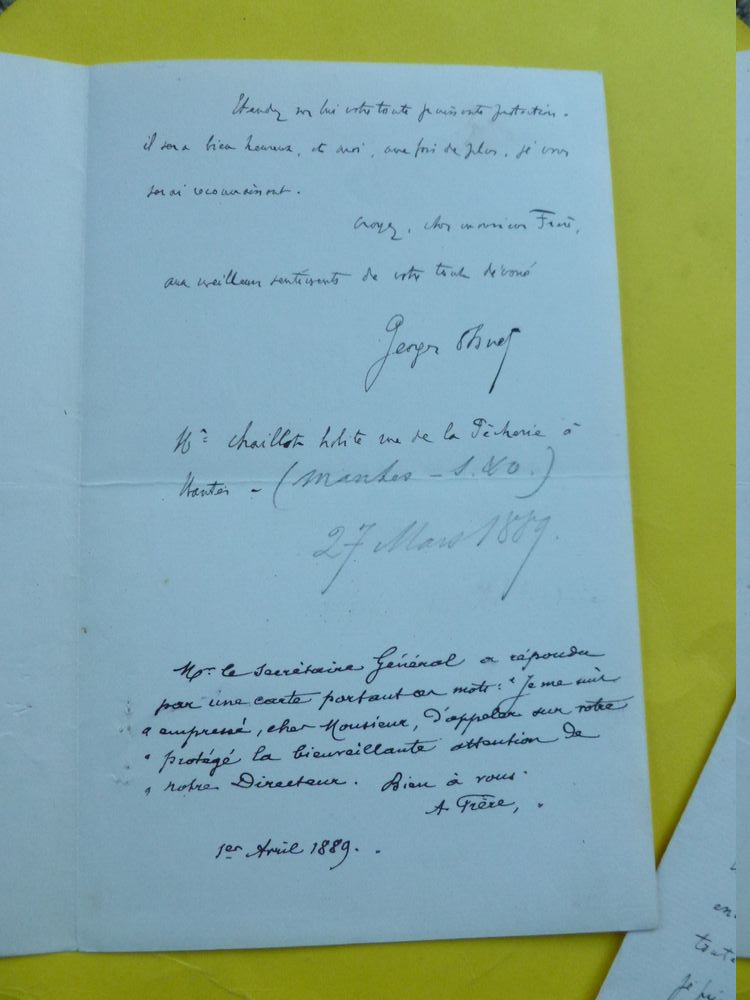 Etendez sur lui votre toute puissante protection.
il sera bien heureux, et moi, une fois de plus, je vous
serai reconnaissant.
Croyez, cher monsieur Frère,
aux meilleurs sentiments de votre tout dévoué
Georges Ohnet
Mr Chaillot habite rue de la Pêcherie à
Mantes - (Mantes - S. & O.)
27 Mars 1889.
Mr le Secrétaire Général a répondu
par une carte portant ces mots: "Je me suis
" empressé, cher Monsieur, d'appeler sur votre
" protégé la bienveillante attention de
" notre Directeur. Bien à vous
A Frère, "
1er Avril 1889.
en
toute
je